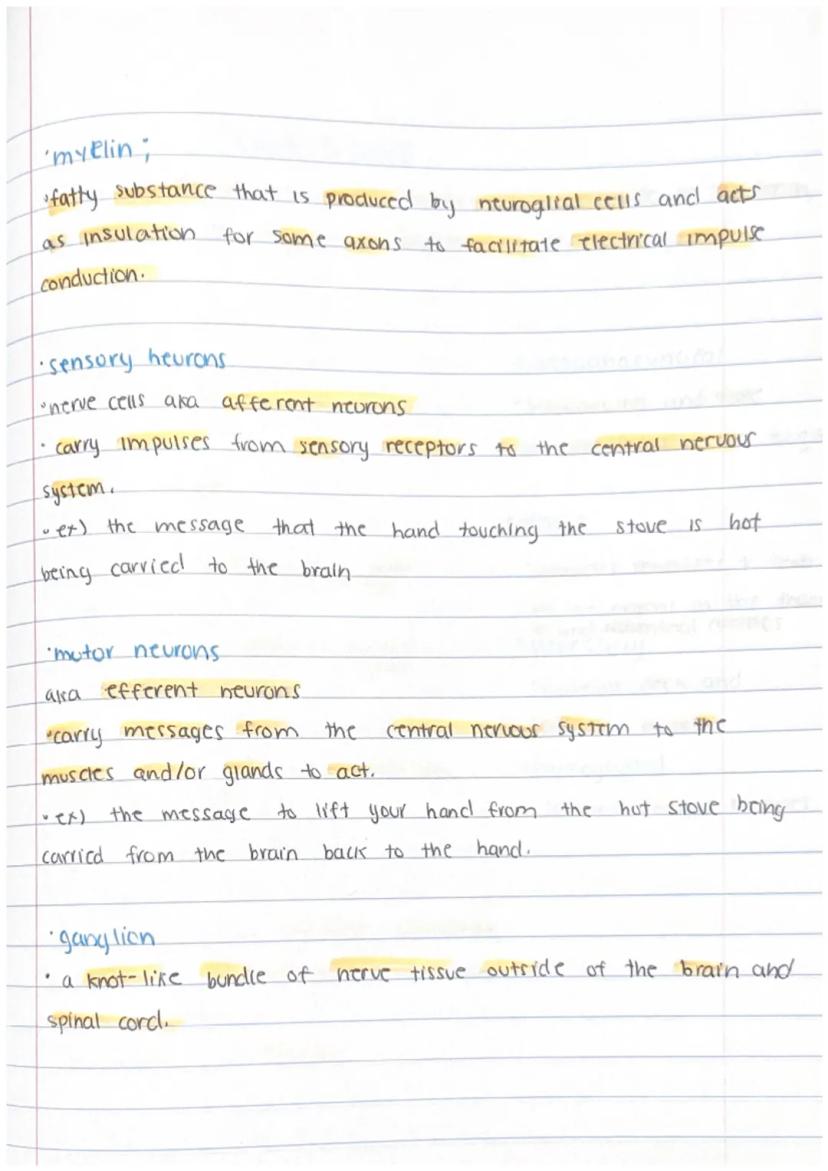 ·myelin;
·fatty substance that is produced by neuroglial cells and acts
as insulation for some axons to facilitate electrical impulse
conduction.
·sensory neurons
·nerve cells aka afferent neurons
· carry impulses from sensory receptors to the central nervous
system.
· ex) the message that the hand touching the stove is hot
being carried to the brain
·motor neurons
aka efferent neurons
·carry messages from the central nervous system to the
muscles and/or glands to act.
· ex) the message to lift your hand from the hot stove being
carried from the brain back to the hand.
·ganglion
· a knot-like bundle of nerve tissue outside of the brain and
spinal cord.